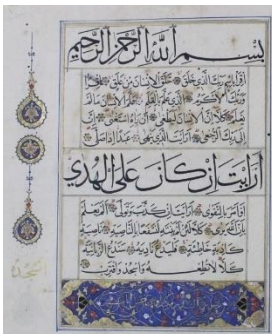 بسم الله الرحمن الرحيم
اقرا باسم ربك الذي خلق خلق الانسان من علق اقرا
وربك الاكرم الذي علم بالقلم علم الانسان ما لم
يعلم كلا ان الانسان ليطغى ان راه استغنى ان
الى ربك الرجعى ارايت الذي ينهى عبدا اذا صلى
ارايت ان كان على الهدى
او امر بالتقوى ارايت ان كذب وتولى الم يعلم
بان الله يرى كلا لئن لم ينته لنسفعا بالناصية ناصية
كاذبة خاطئة فليدع ناديه سندع الزبانية
كلا لا تطعه واسجد واقترب
سجدة